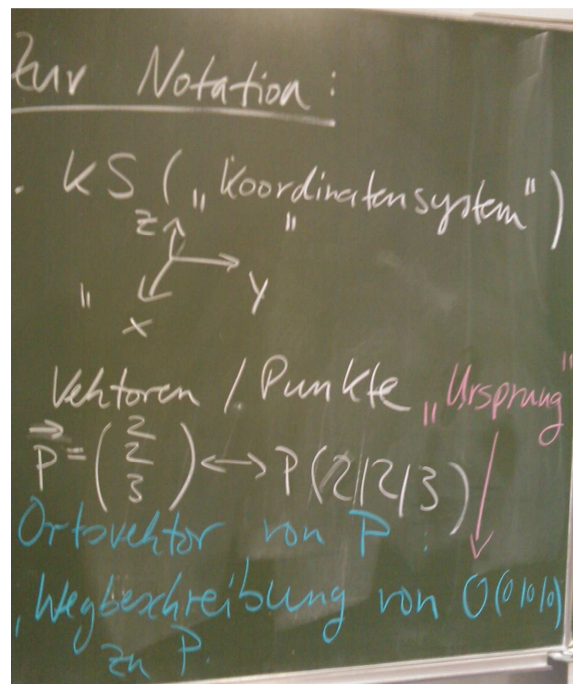 Zur Notation:
. KS („Koordinatensystem")
z
"
"
y
x
Vektoren / Punkte „Ursprung"
p = (2 2 3) ↔ P(2|2|3)
Ortsvektor von P:
„Wegbeschreibung von O(0|0|0)
zu P.